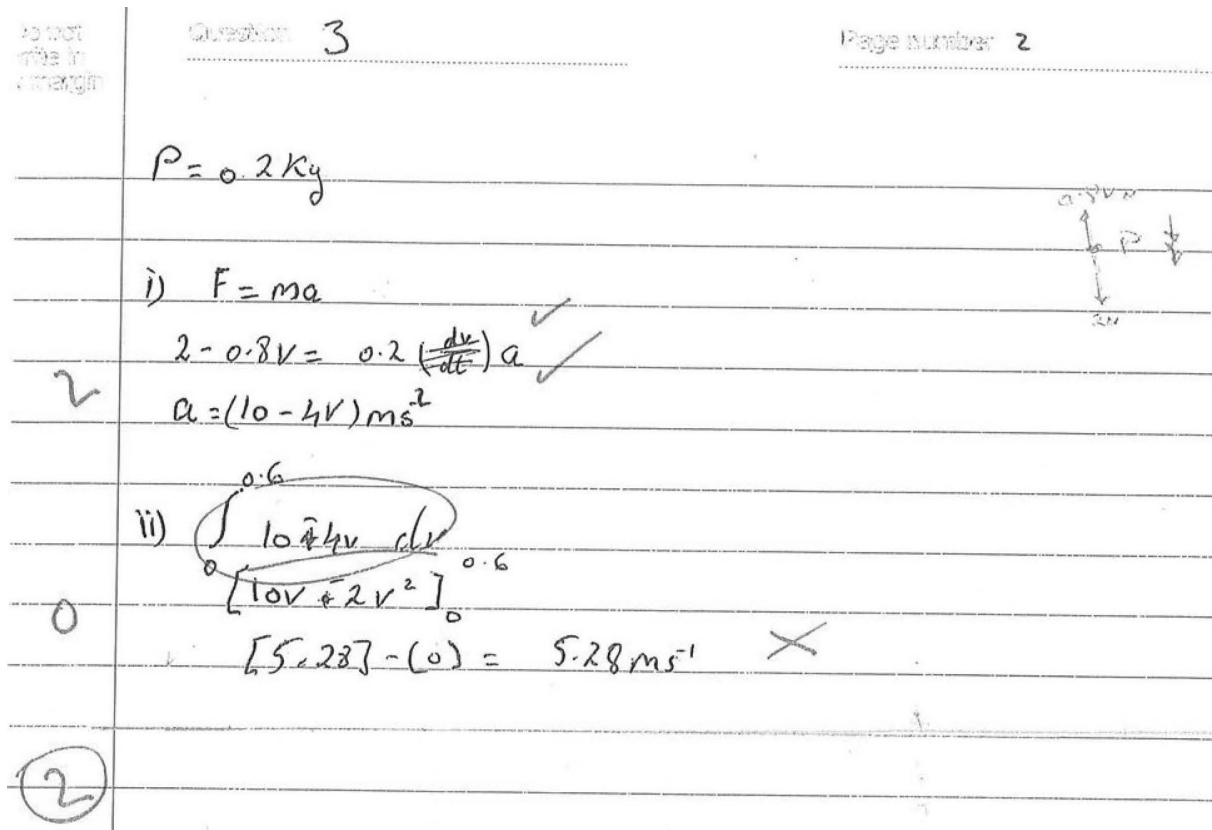 Do not
write in
margin
Question 3
Page number 2
P = 0.2 Kg
0.8v N
P
2N
i) F = ma
2 - 0.8v = 0.2 (dv/dt) a
2
a = (10 - 4v) ms⁻²
ii) ∫₀^0.6 10 - 4v dv
[10v - 2v²]₀^0.6
0
[5.28] - (0) = 5.28 ms⁻¹
2